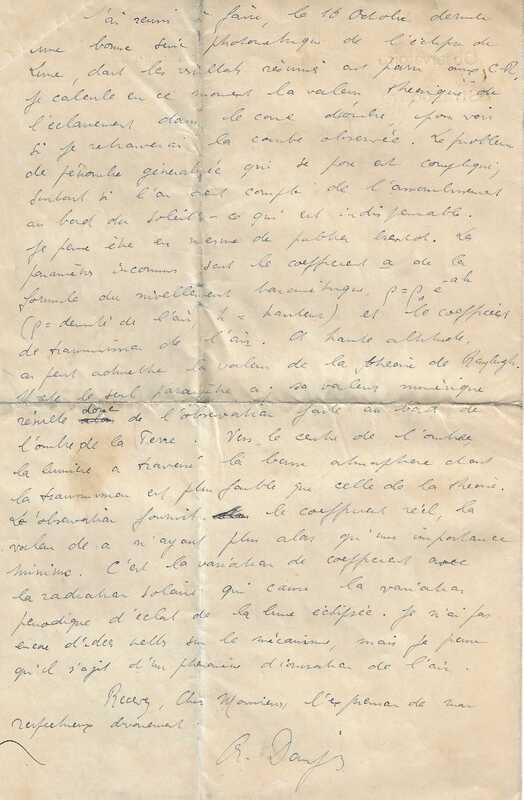 J'ai réussi à faire, le 16 Octobre dernier
une bonne série photométrique de l'éclipse de
Lune, dont les résultats résumés ont paru aux C.R.
Je calcule en ce moment la valeur théorique de
l'éclairement dans le cone d'ombre, pour voir
si je retrouverai la courbe observée. Le problème
de pénombre généralisée qui se pose est compliqué,
surtout si l'on tient compte de l'assombrissement
au bord du Soleil - ce qui est indispensable.
Je pense être en mesure de publier bientot. Les
paramètres inconnus sont le coefficient a de la
formule du nivellement barométrique, ρ=ρ₀ e^-ah
(ρ = densité de l'air h = hauteur) et le coefficient
de transmission de l'air. A haute altitude,
on peut admettre la valeur de la théorie de Rayleigh.
Reste le seul paramètre a: sa valeur numérique
résulte donc de l'observation faite au bord de
l'ombre de la Terre. Vers le centre de l'ombre
la lumière a traversé la basse atmosphère dont
la transmission est plus faible que celle de la théorie.
L'observation fournit le coefficient réel, la
valeur de a n'ayant plus alors qu'une importance
minime. C'est la variation de coefficient avec
la radiation solaire qui cause la variation
périodique d'éclat de la lune éclipsée. Je n'ai pas
encore d'idées nettes sur le mécanisme, mais je pense
qu'il s'agit d'un phénomène d'ionisation de l'air.
Recevez, Cher Monsieur, l'expression de mon
respectueux dévouement.
A. Danjon